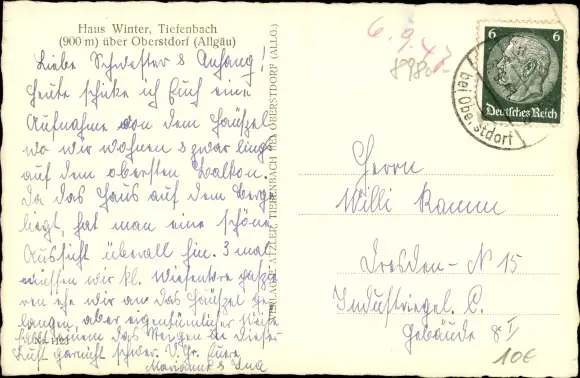 Haus Winter, Tiefenbach
(900 m) über Oberstdorf (Allgäu)
Liebe Schwester & Anhang!
Heute schicke ich Euch eine
Aufnahme von dem Häusel
wo wir wohnen & zwar links
auf dem obersten Balkon.
Da das Haus auf dem Berge
liegt, hat man eine schöne
Aussicht überall hin. 3 mal
müssen wir kl. Wiesentore passie-
ren ehe wir an das Häusel ge-
langen, aber eigentümlicher Weise
fällt einem das Steigen in dieser
Luft garnicht schwer. V. Gr. Eure
Marianne &
VERLAG TIEFENBACH BEI OBERSTDORF (ALLG.)
6.9.4
6 6
Deutsches Reich
bei Oberstdorf
Herrn
Willi Ramm
Dresden-N 15
Industriegel. C.
Gebäude 8 I
10€